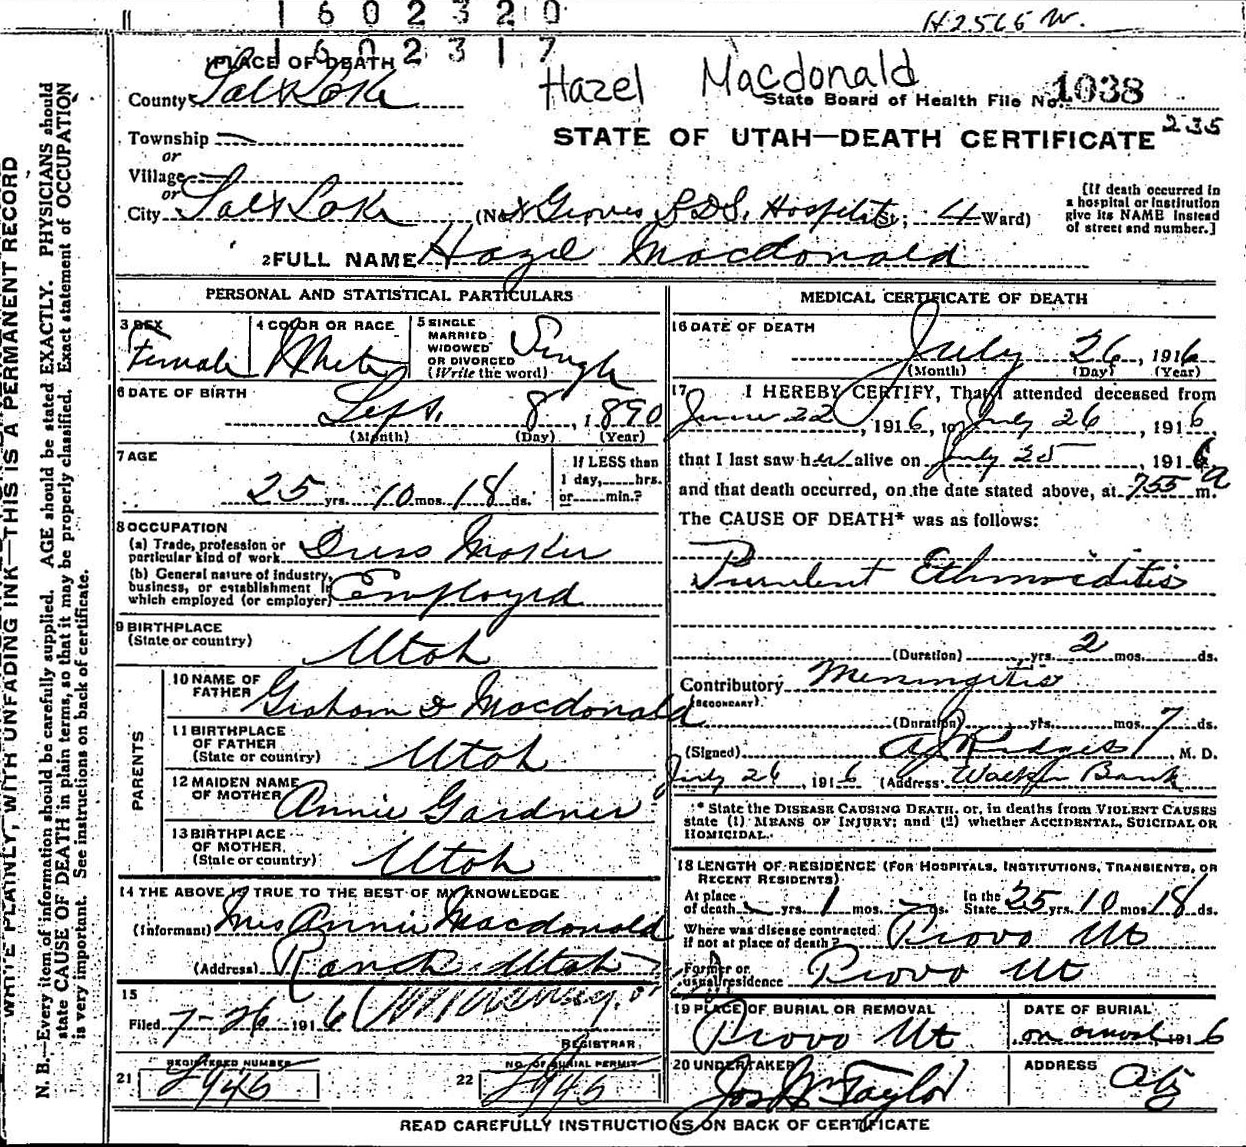 1602320
H2565 W.
1602317
PLACE OF DEATH
Hazel Macdonald
County Salt Lake
State Board of Health File No. 1038
235
Township
or
Village
or
STATE OF UTAH—DEATH CERTIFICATE
City Salt Lake (No. Groves L.D.S. Hospital St; 4 Ward)
[If death occurred in
a hospital or institution
give its NAME instead
of street and number.]
2 FULL NAME Hazel Macdonald
PERSONAL AND STATISTICAL PARTICULARS
3 SEX
Female
4 COLOR OR RACE
White
5 SINGLE
MARRIED
WIDOWED
OR DIVORCED
(Write the word)
Single
6 DATE OF BIRTH
Sept. 8, 1890
(Month) (Day) (Year)
7 AGE
25 yrs. 10 mos. 18 ds.
If LESS than
1 day, hrs.
or min.?
8 OCCUPATION
(a) Trade, profession or
particular kind of work Dress Maker
(b) General nature of industry,
business, or establishment in
which employed (or employer) Employed
9 BIRTHPLACE
(State or country)
Utah
PARENTS
10 NAME OF
FATHER Graham D Macdonald
11 BIRTHPLACE
OF FATHER
(State or country) Utah
12 MAIDEN NAME
OF MOTHER Annie Gardner
13 BIRTHPLACE
OF MOTHER
(State or country) Utah
14 THE ABOVE IS TRUE TO THE BEST OF MY KNOWLEDGE
(Informant) Mrs Annie Macdonald
(Address) Ranch Utah
15
Filed 7-26 1916
REGISTRAR
REGISTERED NUMBER
21 2946
NO. OF BURIAL PERMIT
22 2946
MEDICAL CERTIFICATE OF DEATH
16 DATE OF DEATH
July 26, 1916
(Month) (Day) (Year)
17 I HEREBY CERTIFY, That I attended deceased from
June 22, 1916, to July 26, 1916,
that I last saw her alive on July 25, 1916
and that death occurred, on the date stated above, at 755 a m.
The CAUSE OF DEATH* was as follows:
Purulent Ethmoiditis
(Duration) yrs. 2 mos. ds.
Contributory Meningitis
(SECONDARY)
(Duration) yrs. mos. 7 ds.
(Signed) M. D.
July 26, 1916 (Address) Walker Bank
* State the DISEASE CAUSING DEATH, or, in deaths from VIOLENT CAUSES
state (1) MEANS OF INJURY; and (2) whether ACCIDENTAL, SUICIDAL OR
HOMICIDAL.
18 LENGTH OF RESIDENCE (FOR HOSPITALS, INSTITUTIONS, TRANSIENTS, OR
RECENT RESIDENTS)
At place
of death yrs. 1 mos. ds. In the
State 25 yrs. 10 mos. 18 ds.
Where was disease contracted
if not at place of death? Provo Ut
Former or
usual residence Provo Ut
19 PLACE OF BURIAL OR REMOVAL
Provo Ut
DATE OF BURIAL
on arrival 1916
20 UNDERTAKER
Jos Wm Taylor
ADDRESS
City
READ CAREFULLY INSTRUCTIONS ON BACK OF CERTIFICATE
WRITE PLAINLY, WITH UNFADING INK—THIS IS A PERMANENT RECORD
N. B.—Every item of information should be carefully supplied. AGE should be stated EXACTLY. PHYSICIANS should
state CAUSE OF DEATH in plain terms, so that it may be properly classified. Exact statement of OCCUPATION
is very important. See instructions on back of certificate.